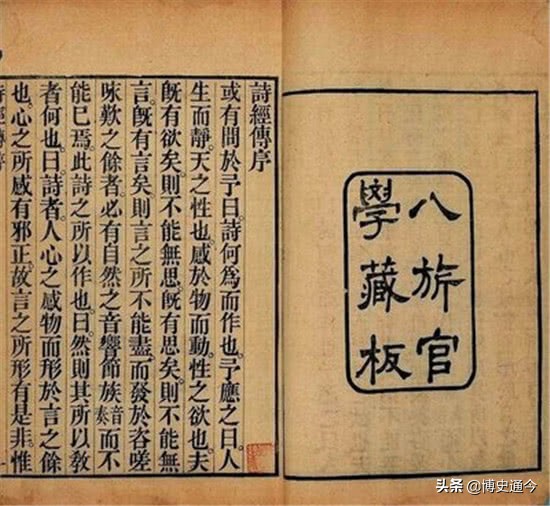 八旂官
學藏板
詩經傳序
或有問於予曰。詩何為而作也。予應之曰。人
生而靜。天之性也。感於物而動。性之欲也。夫
既有欲矣。則不能無思。既有思矣。則不能無
言。既有言矣。則言之所不能盡。而發於咨嗟
咏歎之餘者。必有自然之音響節族音奏而不
能已焉。此詩之所以作也。曰。然則其所以教
者何也。曰。詩者。人心之感物而形於言之餘
也。心之所感有邪正。故言之所形有是非。惟
詩經傳序
头条 @博史通今